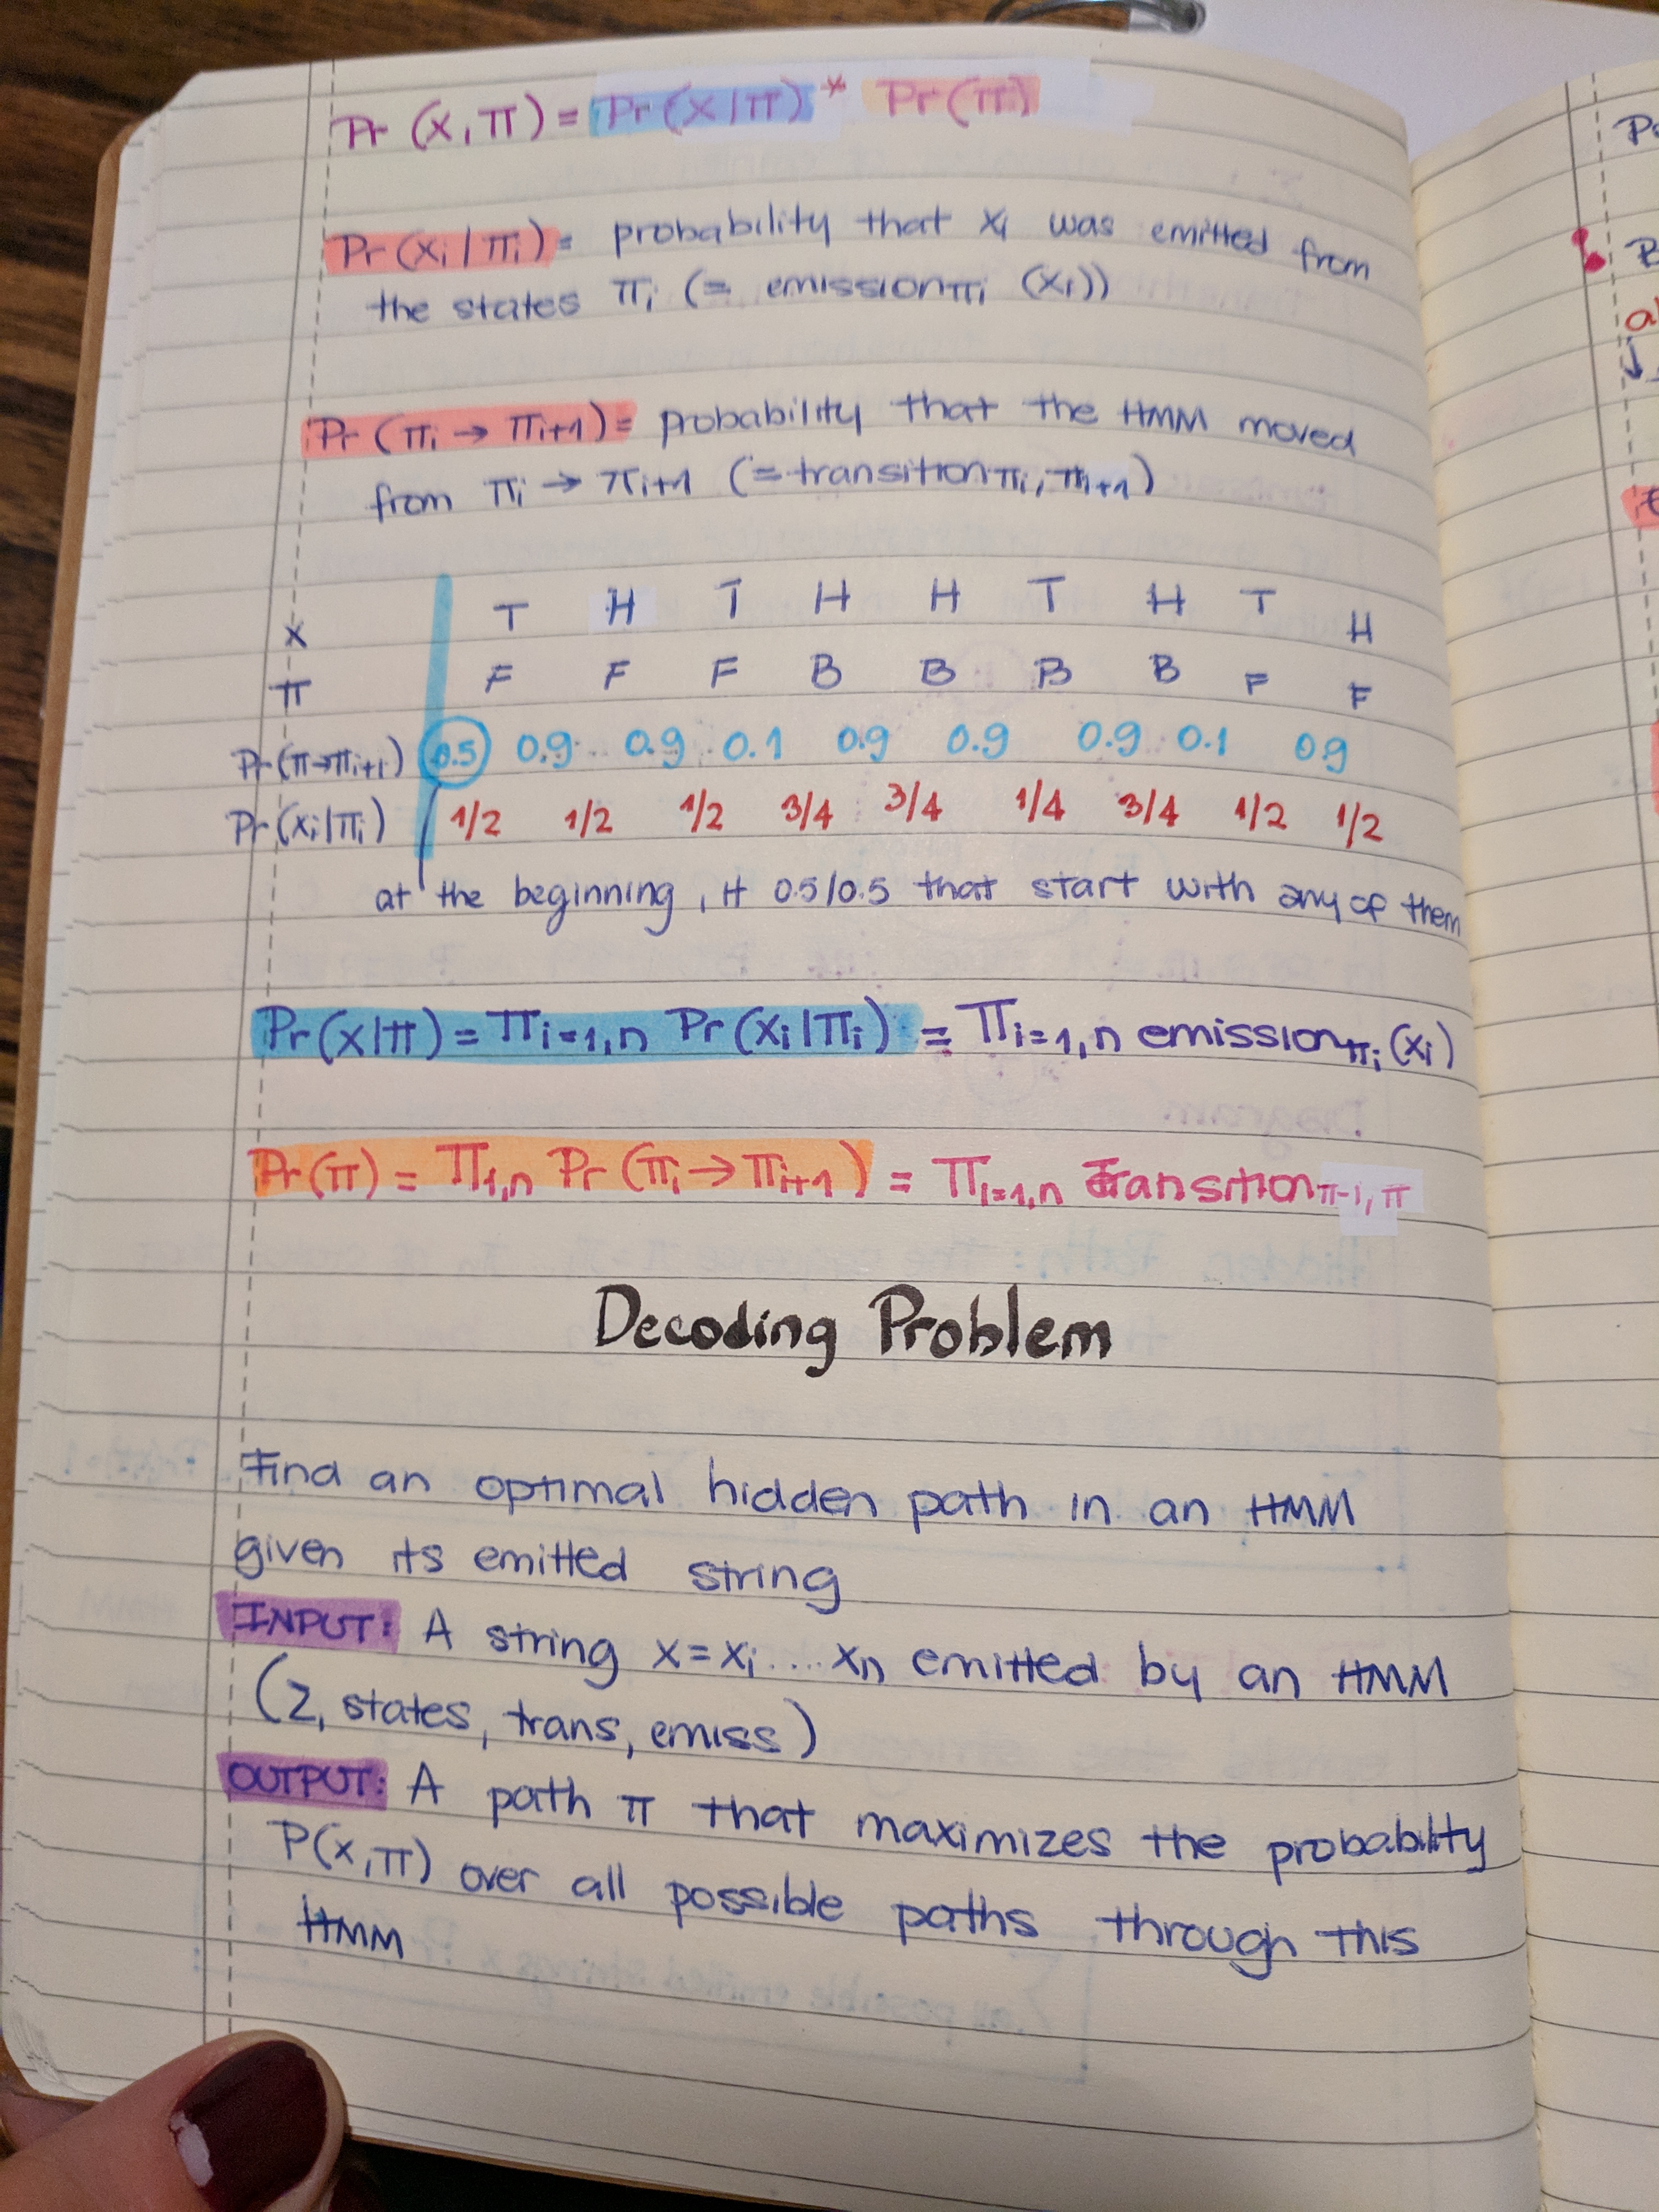 Pr (x,π) = Pr(x|π) * Pr(π)
Pr(xi|πi) = probability that xi was emitted from
the states πi (= emissionπi (xi))
Pr (πi → πi+1) = probability that the HMM moved
from πi → πi+1 (= transitionπi, πi+1)
x T H T H H T H T H
π F F F B B B B F F
Pr(π→πi+1) 0.5 0.9 0.9 0.1 0.9 0.9 0.9 0.1 0.9
Pr(xi|πi) 1/2 1/2 1/2 3/4 3/4 1/4 3/4 1/2 1/2
at the beginning, it 0.5/0.5 that start with any of them
Pr(x|π) = πi=1,n Pr(xi|πi) = πi=1,n emissionπi(xi)
Pr(π) = π1,n Pr (πi→πi+1) = πi=1,n Transitionπ-1, π
Decoding Problem
Find an optimal hidden path in an HMM
given its emitted string
INPUT: A string x=xi....xn emitted by an HMM
(Σ, states, trans, emiss)
OUTPUT: A path π that maximizes the probability
P(x,π) over all possible paths through this
HMM